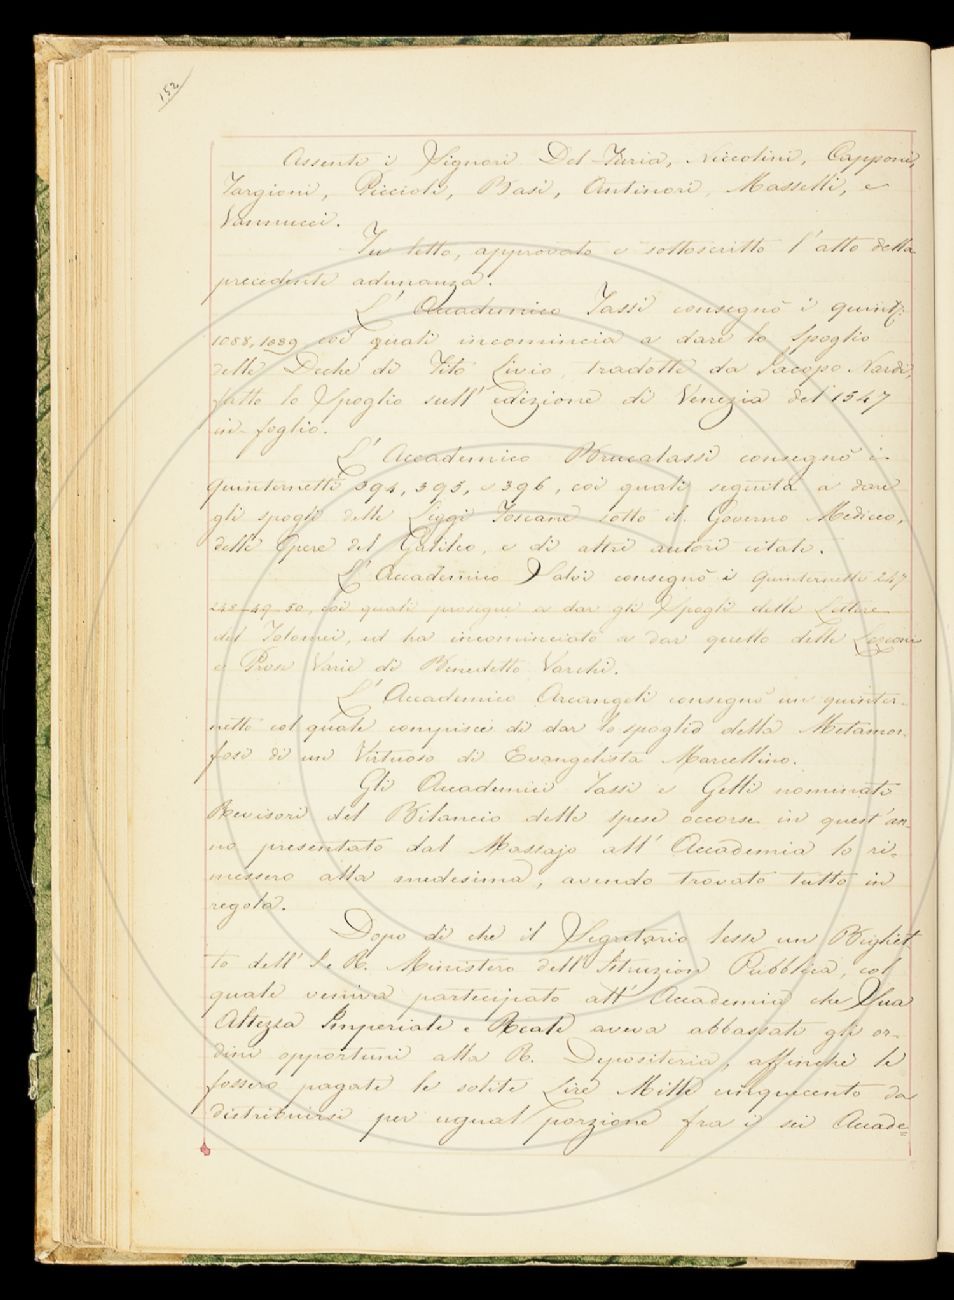 152
Assenti i Signori Del Furia, Niccolini, Capponi,
Targioni, Piccioli, Basi, Antinori, Masselli, e
Vannucci.
Fu letto, approvato e sottoscritto l'atto della
precedente adunanza.
L'Accademico Tassi consegnò i quint:
1088, 1089 coi quali incomincia a dare lo Spoglio
delle Deche di Tito Livio, tradotte da Jacopo Nardi,
fatto lo Spoglio sull'edizione di Venezia del 1547
in-foglio.
L'Accademico Brucalassi consegnò i
quinternetti 394, 395, e 396, coi quali seguita a dare
gli spogli delle Leggi Toscane sotto il Governo Mediceo,
delle Opere del Galileo, e di altri autori citati.
L'Accademico Salvi consegnò i Quinternetti 247
248-49-50, coi quali prosegue a dar gli Spogli delle Lettere
del Tolomei, ed ha incominciato a dar quello delle Lezioni
e Prose Varie di Benedetto Varchi.
L'Accademico Arcangeli consegnò un quinter-
netto col quale compisce di dar lo spoglio della Metamor-
fosi di un Virtuoso di Evangelista Marcellino.
Gli Accademici Tassi e Gelli nominati
Revisori del Bilancio delle spese occorse in quest'an-
no presentato dal Massajo all'Accademia lo ri-
messero alla medesima, avendo trovato tutto in
regola.
Dopo di che il Segretario lesse un Bigliet
to dell'I. e R. Ministero dell'Istruzione Pubblica, col
quale veniva partecipato all'Accademia che Sua
Altezza Imperiale e Reale aveva abbassati gli or-
dini opportuni alla R. Depositeria, affinchè le
fossero pagate le solite Lire Mille cinquecento da
distribuirsi per ugual porzione fra i sei Accade=